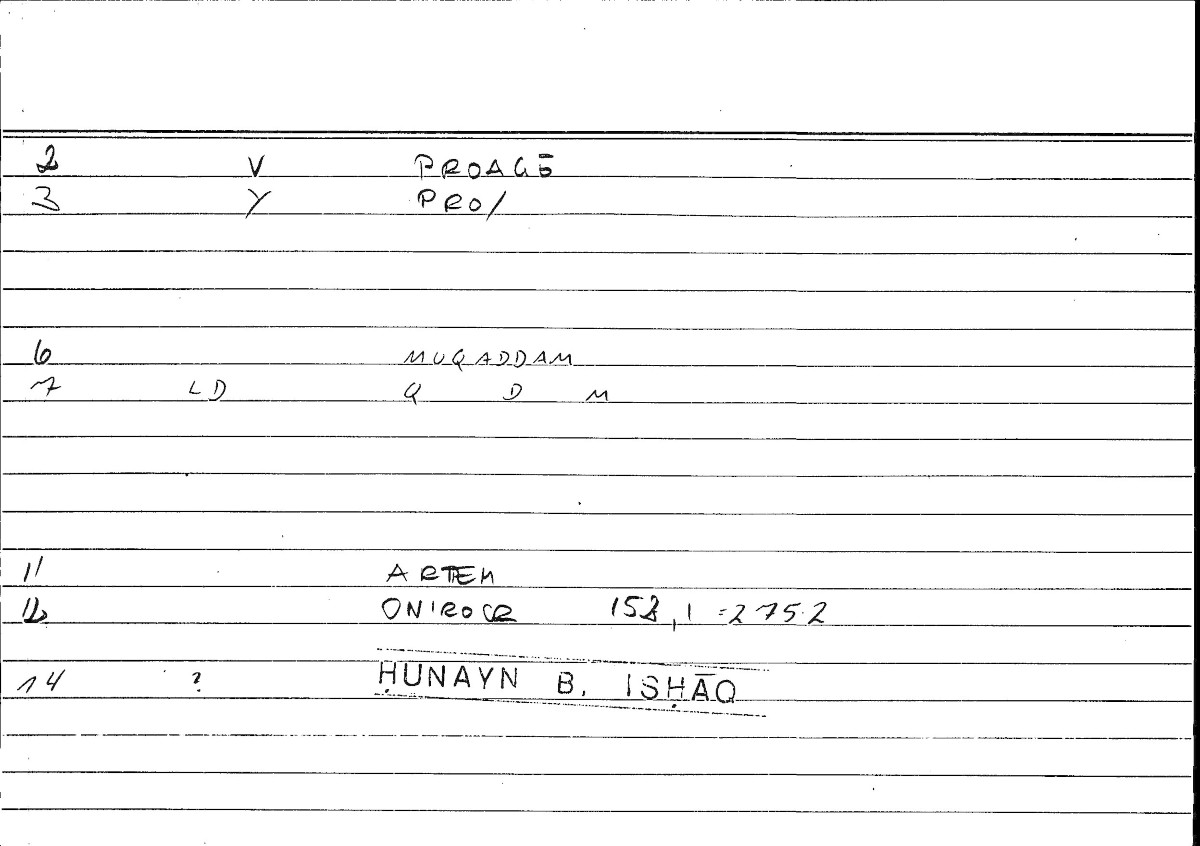 2 V PROAGŌ
3 Y PRO/
6 MUQADDAM
7 LD Q D M
11 ARTEM
12 ONIROCR 152,1 =275.2
14 ? ḤUNAYN B. ISḤĀQ